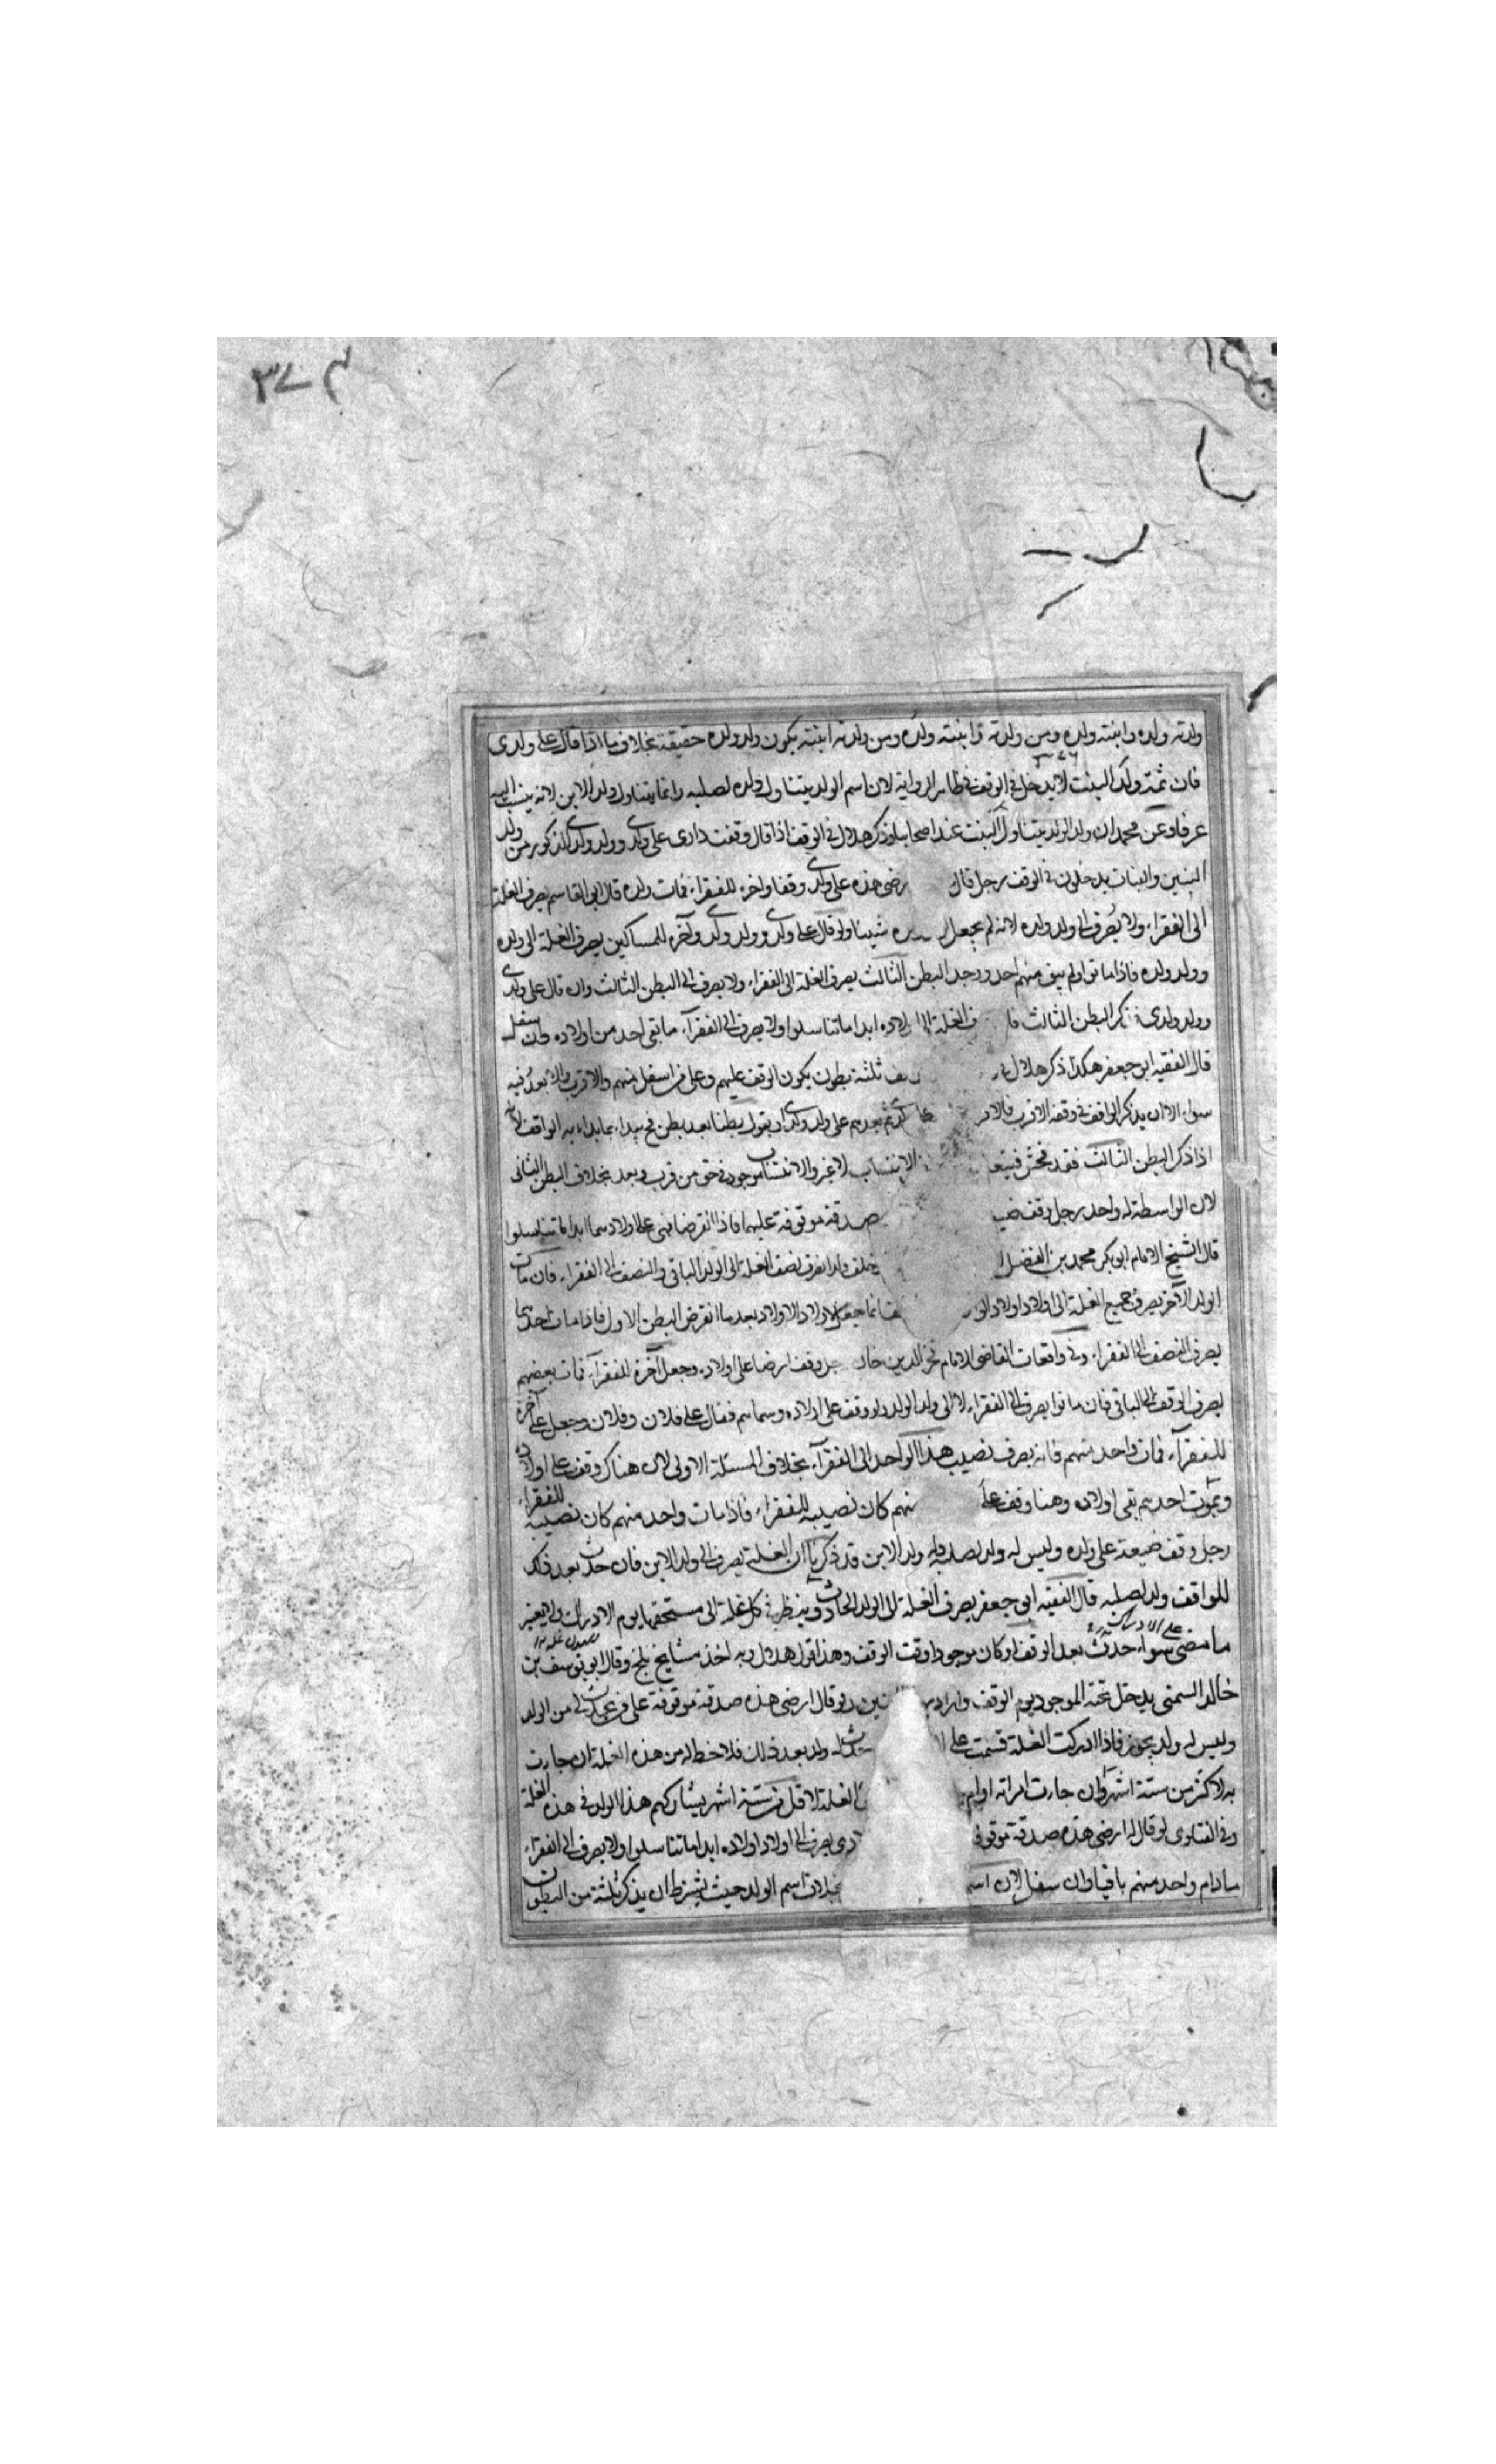 ولدته ولده وابنته ولده ومن ولدته وابنته ولده ومن ولدته ابنته يكون ولد ولده حقيقة بخلاف ما اذا قال على ولدى
فان ثمة ولد البنت لا يدخل فى الوقف فى ظاهر الرواية لان اسم الولد يتناول ولده لصلبه وانما يتناول ولد الابن لانه ينسب اليه
عرفا وعن محمد ان ولد الولد يتناول البنت عند اصحابنا وذكر هلال فى الوقف اذا قال وقفت دارى على ولدى وولد ولدى الذكور من ولد
البنين والبنات يدخلون فى الوقف رجل قال رضى هذه على ولدى وقفا واخره للفقراء فمات ولده قال ابو القاسم يصرف الغلة
الى الفقراء ولا يصرف الى ولد ولده لانه لم يجعل شيئا ولو قال على ولدى وولد ولدى وآخره للمساكين يصرف الغلة الى ولده
وولد ولده فاذا ماتوا ولم يبق منهم احد ووجد البطن الثالث يصرف الغلة الى الفقراء ولا يصرف الى البطن الثالث وان قال على ولدى
وولد ولدى كر البطن الثالث فا ف الغلة الى اولاده ابدا ما تناسلوا ولا يصرف الى الفقراء ما بقى احد من اولاده وان سفل
قال الفقيه ابو جعفر هكذا ذكر هلال ثلثة بطون يكون الوقف عليهم وعلى من اسفل منهم والاقرب والابعد فيه
سواء الا ان يذكر الواقف فى وقفه الاقرب فالاقر ثم بعدهم على ولد ولدى او يقول بطنا بعد بطن فح يبداء بما بداء به الواقف لانه
اذا ذكر البطن الثالث فقد فحش فيتعا الانتساب لا غير والانتساب موجود فى حق من قرب وبعد بخلاف البطن الثانى
لان الواسطة له واحد رجل وقف ضيـ صدقة موقوفة عليهما فاذا انقرضا فهى على اولادهما ابدا ما تناسلوا
قال الشيخ الامام ابو بكر محمد بن الفضل خلف ولدا يصرف نصف الغلة الى الولد الباقى والنصف الى الفقراء فان مات
الولد الآخر يصرف جميع الغلة الى اولاد اولاد الو انما جعل لاولاد الاولاد بعد ما انقرض البطن الاول فاذا مات احدهما
يصرف النصف الى الفقراء وفى واقعات القاضى الامام فخر الدين خان جل وقف ارضا على اولاده وجعل آخره للفقراء فمات بعضهم
يصرف الوقف الى الباقى فان ماتوا يصرف الى الفقراء لا الى ولد الولد ولو وقف على اولاده وسماهم فقال على فلان وفلان وجعل آخره
للفقراء فمات واحد منهم فانه يصرف نصيب هذا الواحد الى الفقراء بخلاف المسئلة الاولى لان هناك وقف على اولاده
وبموت احدهم بقى اولاده وهنا وقف على منهم كان نصيبه للفقراء فاذا مات واحد منهم كان نصيبه للفقراء
رجل وقف ضيعة على ولده وليس له ولد لصلبه وله ولد الابن قد ذكرنا ان الغلة يصرف الى ولد الابن فان حدث بعد ذلك
للواقف ولد لصلبه قال الفقيه ابو جعفر يصرف الغلة الى الولد الحادث وينظر فى كل غلة الى مستحقها يوم الادراك ولا يعتبر
ما مضى سواء حدث بعد الوقف او كان موجودا وقت الوقف وهذا قول هلال وبه اخذ مشايخ بلخ وقال ابو يوسف بن
خالد السمتى يدخل تحته الموجود يوم الوقف ولو قال ارضى هذه صدقة موقوفة على من يحدث لى من الولد
وليس له ولد يجوز فاذا ادركت الغلة قسمت على له ولد بعد ذلك فلا حظ له من هذه الغلة ان جاءت
به لاكثر من ستة اشهر وان جاءت امراته او ام الغلة لاقل من ستة اشهر يشاركهم هذا الولد فى هذه الغلة
وفى الفتاوى لو قال ارضى هذه صدقة موقو يصرف الى اولاد اولاده ابدا ما تناسلوا ولا يصرف الى الفقراء
مادام واحد منهم باقيا وان سفل لان اسم بخلاف اسم الولد حيث يشترط ان يذكر ثلثة من البطون